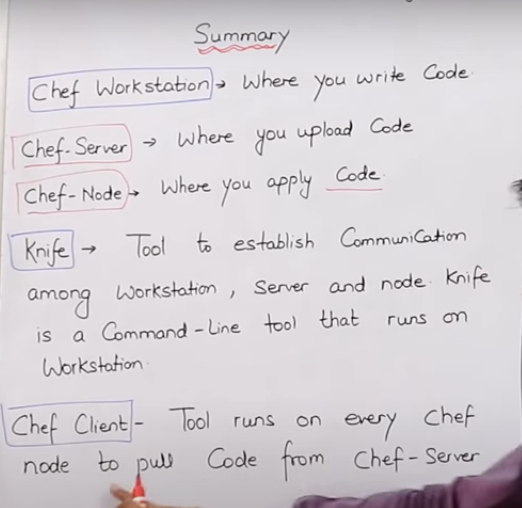 Summary
Chef Workstation → Where you write Code.
Chef-Server → Where you upload Code
Chef-Node → Where you apply Code.
Knife → Tool to establish Communication
among Workstation, Server and node. Knife
is a Command-Line tool that runs on
Workstation.
Chef Client - Tool runs on every Chef
node to pull Code from Chef-Server